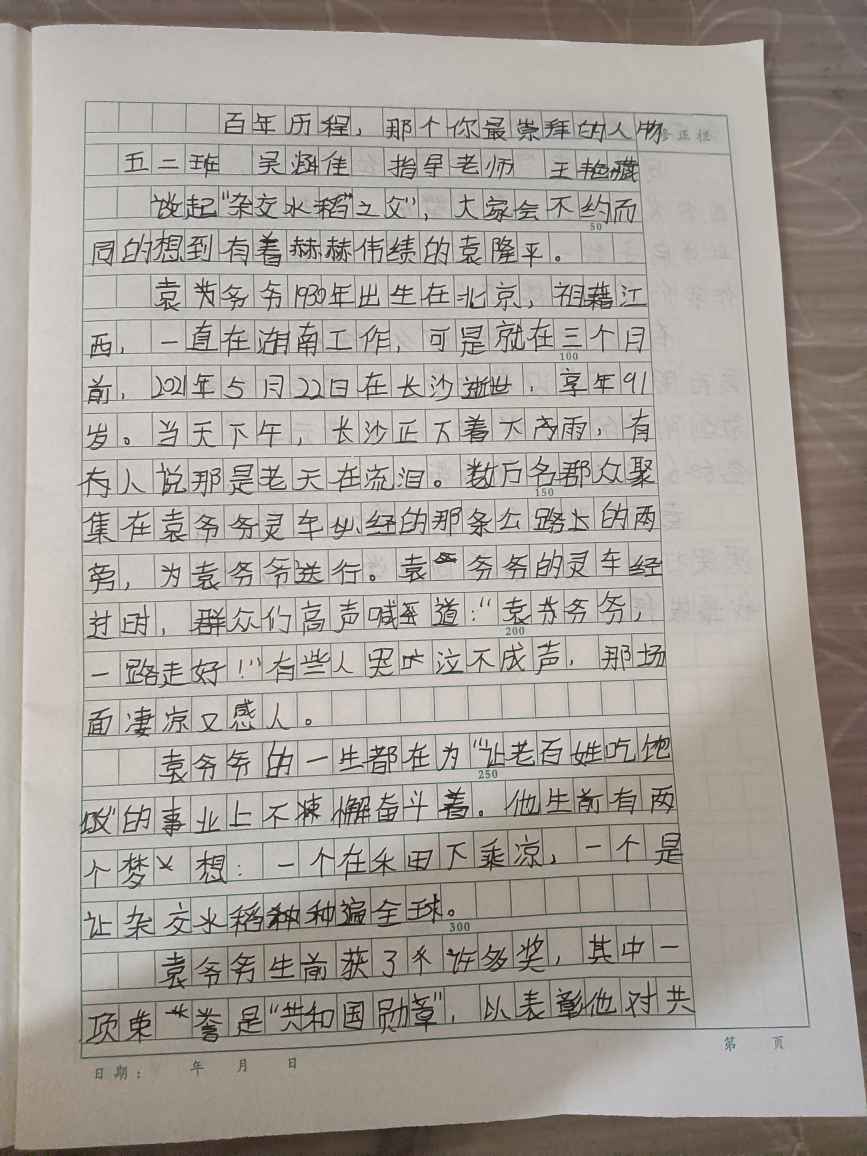 百年历程，那个你最崇拜的人物
修正栏
五二班 吴涵佳 指导老师 王艳
谈起“杂交水稻”之父”，大家会不约而
50
同的想到有着赫赫伟绩的袁隆平。
袁爷爷1930年出生在北京，祖籍江
西，一直在湖南工作，可是就在三个月
100
前，2021年5月22日在长沙逝世，享年91
岁。当天下午，长沙正下着大雨，有
人说那是老天在流泪。数万名群众聚
150
集在袁爷爷灵车必经的那条公路上的两
旁，为袁爷爷送行。袁爷爷的灵车经
过时，群众们高声喊道：“袁爷爷，
200
一路走好！”有些人哭泣不成声，那场
面凄凉又感人。
袁爷爷的一生都在为“让老百姓吃饱
250
饭”的事业上不懈奋斗着。他生前有两
个梦想：一个在禾田下乘凉，一个是
让杂交水稻种遍全球。
300
袁爷爷生前获了许多奖，其中一
项荣誉是“共和国勋章”，以表彰他对共
第 页
日期： 年 月 日